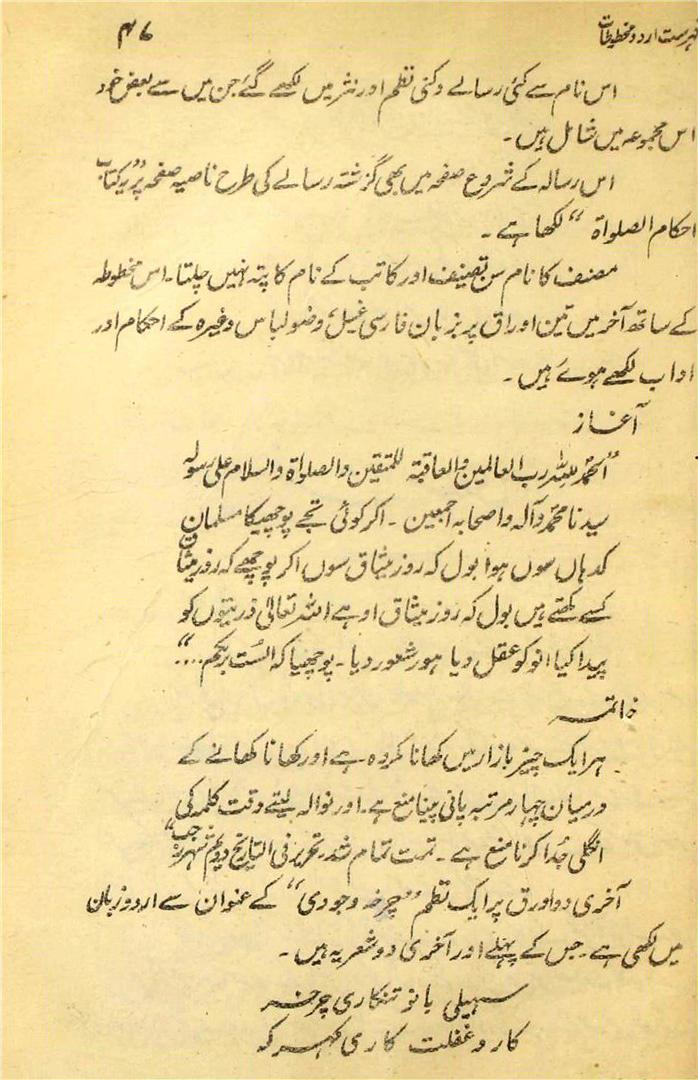 فہرست اردو مخطوطات
۴۷
اس نام سے کئی رسالے دکنی نظم اور نثر میں لکھے گئے جن میں سے بعض خود
اس مجموعہ میں شامل ہیں۔
اس رسالہ کے شروع صفحہ میں بھی گزشتہ رسالے کی طرح ناصیہ صفحہ پر "یہ کتاب
احکام الصلواۃ" لکھا ہے۔
مصنف کا نام سن تصنیف اور کاتب کے نام کا پتہ نہیں چلتا۔ اس مخطوطہ
کے ساتھ آخر میں تین اوراق پر بزبان فارسی غسل وضو لباس وغیرہ کے احکام اور
اداب لکھے ہوے ہیں۔
آغاز
"الحمد للہ رب العالمین والعاقبۃ للمتقین والصلواۃ والسلام علی رسولہ
سیدنا محمد وآلہ واصحابہ اجمعین۔ اگر کوئی تجے پوچھیگا مسلمان
کدہاں سوں ہوا بول کہ روز میثاق سوں اگر پوچھے کہ روز میثاق
کسے کہتے ہیں بول کہ روز میثاق او ہے اللہ تعالیٰ ذریتوں کو
پیدا کیا انو کو عقل دیا ہور شعور دیا۔ پوچھیا کہ الست بربکم...."
خاتمہ
ہر ایک چیز بازار میں کھانا مکروہ ہے اور کھانا کھانے کے
درمیان چہار مرتبہ پانی پینا منع ہے۔ اور نوالہ لیتے وقت کلمہ کی
انگلی جدا کرنا منع ہے۔ تمت تمام شد تحریر فی التاریخ شہر رجب"
آخری دو اورق پر ایک نظم "چرخہ وجودی" کے عنوان سے اردو زبان
میں لکھی ہے۔ جس کے پہلے اور آخری دو شعر یہ ہیں۔
سہیلی بانو تنکاری چرخہ
کار و غفلت کاری